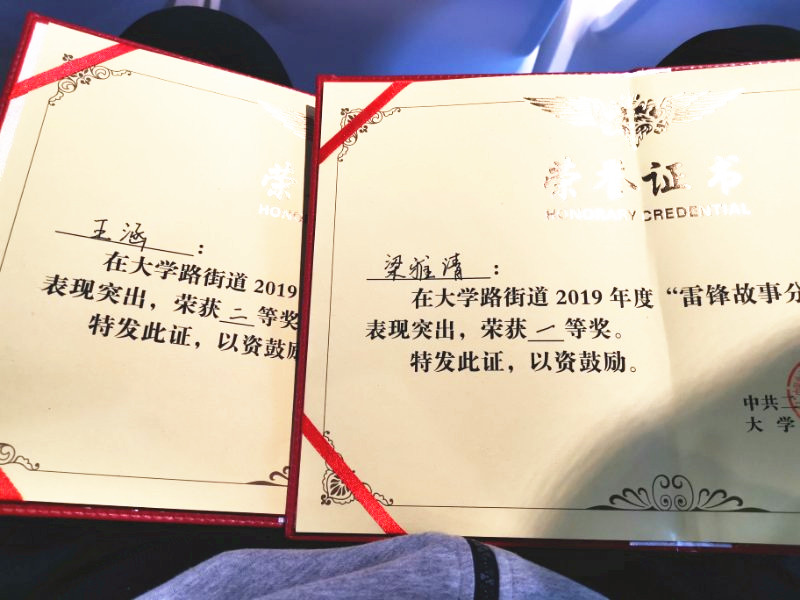 荣
HON
王涵:
在大学路街道 2019
表现突出，荣获二等奖
特发此证，以资鼓励
荣誉证书
HONORARY CREDENTIAL
梁雅清:
在大学路街道 2019 年度“雷锋故事分
表现突出，荣获一等奖。
特发此证，以资鼓励。
中共二
大学